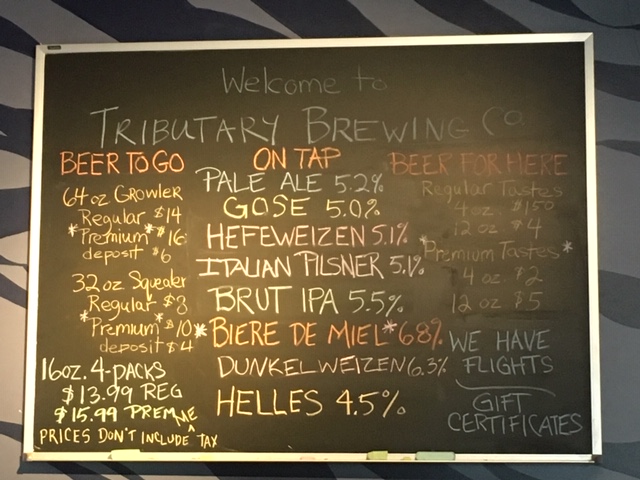 Welcome to
TRIBUTARY BREWING Co
BEER TO GO
64 oz GROWLER
Regular $14
*Premium* $16
deposit $6
32 oz Squealer
Regular $8
*Premium* $10
deposit $4
16oz. 4-PACKS
$13.99 REG
$15.99 PREM
PRICES DON'T INCLUDE ^ME TAX
ON TAP
PALE ALE 5.2%
GOSE 5.0%
HEFEWEIZEN 5.1%
ITALIAN PILSNER 5.1%
BRUT IPA 5.5%
*BIERE DE MIEL* 6.8%
DUNKELWEIZEN 6.3%
HELLES 4.5%
BEER FOR HERE
Regular Tastes
4 oz. $1.50
12 oz $4
*Premium Tastes*
4 oz. $2
12 oz $5
WE HAVE
FLIGHTS
GIFT
CERTIFICATES